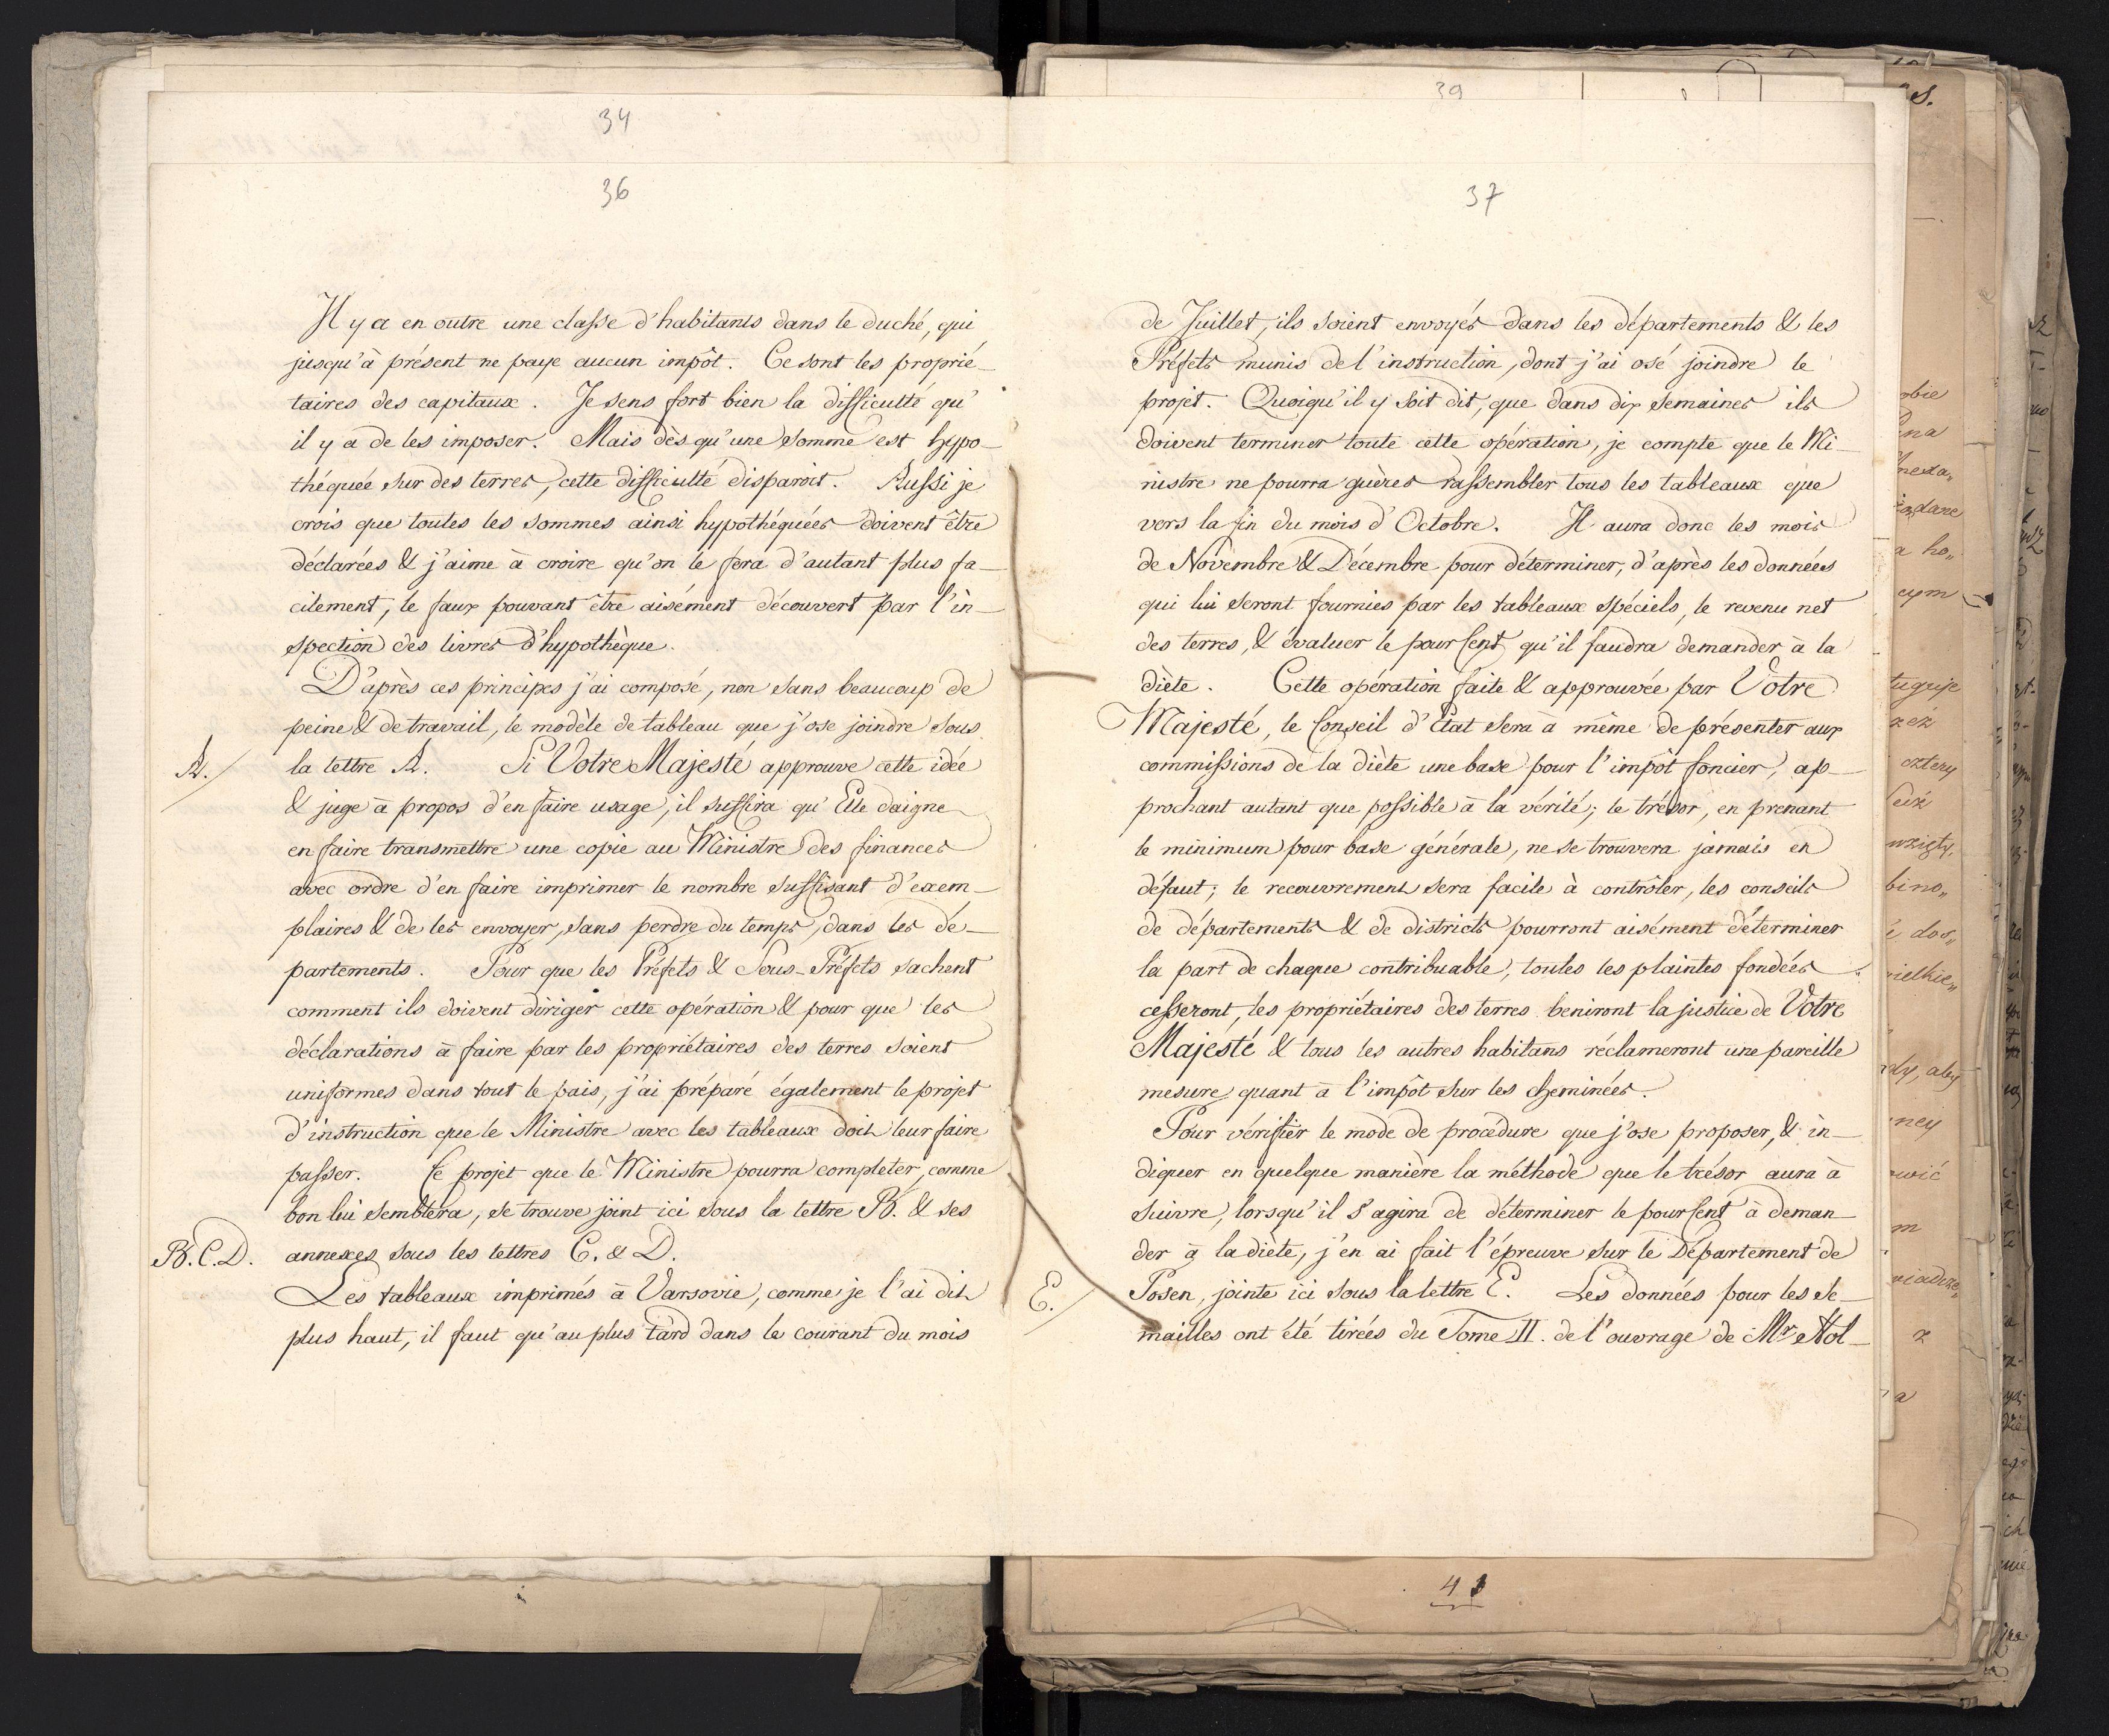 34
36
Il y a en outre une classe d'habitants dans le duché, qui
jusqu'à présent ne paye aucun impôt. Ce sont les proprié-
taires des capitaux. Je sens fort bien la difficulté qu'
il y a de les imposer. Mais dès qu'une somme est hypo-
théquée sur des terres, cette difficulté disparoit. Aussi je
crois que toutes les sommes ainsi hypothéquées doivent être
déclarées & j'aime à croire qu'on le fera d'autant plus fa-
cilement, le faux pouvant être aisément découvert par l'in-
spection des livres d'hypothèque.
D'après ces principes j'ai composé, non sans beaucoup de
peine & de travail, le modèle de tableau que j'ose joindre sous
A. la lettre A. Si Votre Majesté approuve cette idée
& juge à propos d'en faire usage, il suffira qu'Elle daigne
en faire transmettre une copie au Ministre des finances
avec ordre d'en faire imprimer le nombre suffisant d'exem-
plaires & de les envoyer, sans perdre du temps, dans les dé-
partements. Pour que les Préfets & Sous-Préfets sachent
comment ils doivent diriger cette opération & pour que les
déclarations à faire par les propriétaires des terres soient
uniformes dans tout le païs, j'ai préparé également le projet
d'instruction que le Ministre avec les tableaux doit leur faire
passer. Ce projet que le Ministre pourra completer, comme
bon lui semblera, se trouve joint ici sous la lettre B. & ses
B. C. D. annexes sous les lettres C. & D.
Les tableaux imprimés à Varsovie, comme je l'ai dit
plus haut, il faut qu'au plus tard dans le courant du mois
39
37
de Juillet, ils soient envoyés dans les départements & les
Préfets munis de l'instruction, dont j'ai osé joindre le
projet. Quoiqu'il y soit dit, que dans dix semaines ils
doivent terminer toute cette opération, je compte que le Mi-
nistre ne pourra guères rassembler tous les tableaux que
vers la fin du mois d'Octobre. Il aura donc les mois
de Novembre & Décembre pour déterminer, d'après les données
qui lui seront fournies par les tableaux spéciels, le revenu net
des terres, & évaluer le pour Cent qu'il faudra demander à la
diète. Cette opération faite & approuvée par Votre
Majesté, le Conseil d'Etat sera à même de présenter aux
commissions de la diète une base pour l'impôt foncier, ap-
prochant autant que possible à la vérité; le trésor, en prenant
le minimum pour base générale, ne se trouvera jamais en
défaut; le recouvrement sera facile à contrôler, les conseils
de départements & de districts pourront aisément déterminer
la part de chaque contribuable, toutes les plaintes fondées
cesseront, les propriétaires des terres beniront la justice de Votre
Majesté & tous les autres habitans réclameront une pareille
mesure quant à l'impôt sur les cheminées.
Pour vérifier le mode de procédure que j'ose proposer, & in-
diquer en quelque manière la méthode que le trésor aura à
suivre, lorsqu'il s'agira de déterminer le pour Cent à deman-
der à la diète, j'en ai fait l'épreuve sur le Département de
E. Posen, jointe ici sous la lettre E. Les données pour les se-
mailles ont été tirées du Tome II. de l'ouvrage de Mr Hol-
41